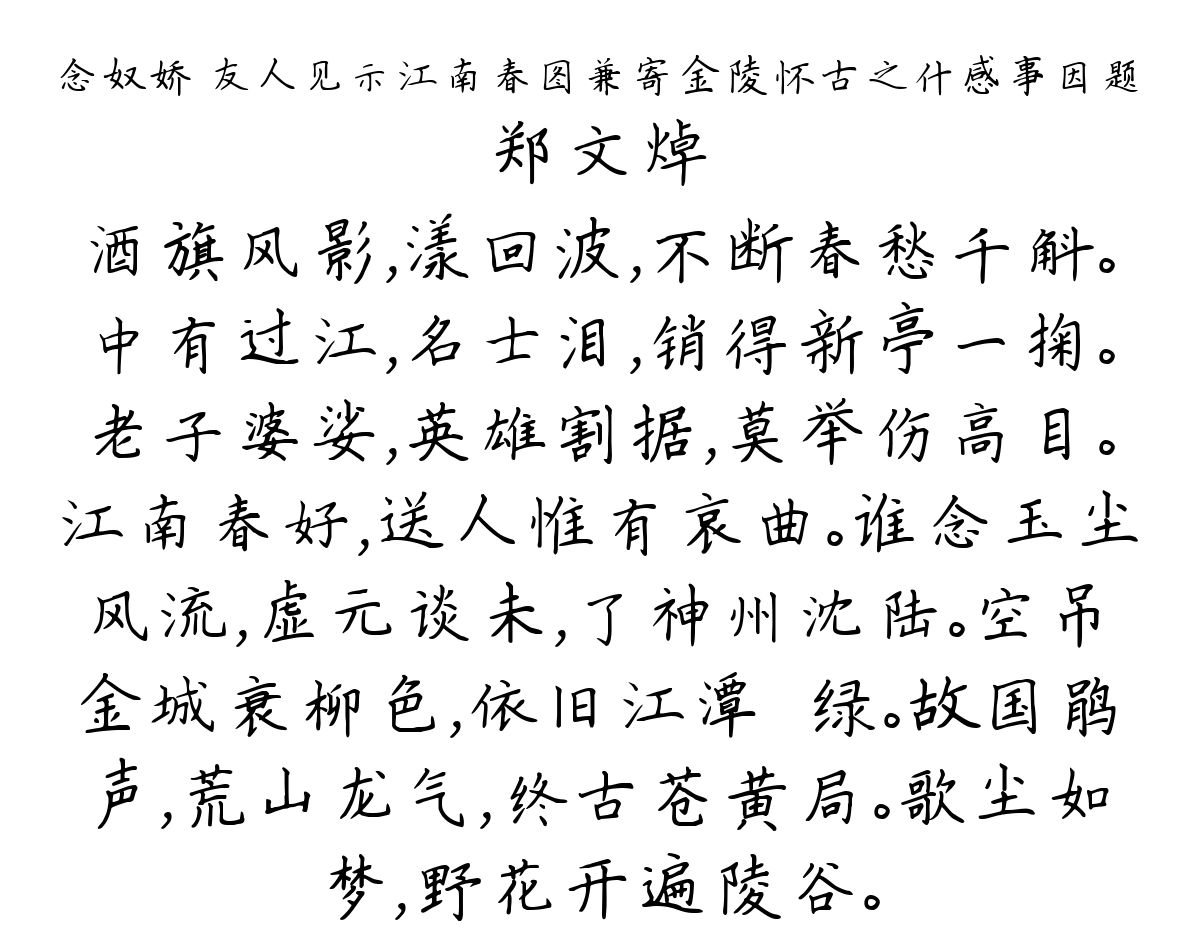 念奴娇 友人见示江南春图兼寄金陵怀古之什感事因题
郑文焯
酒旗风影,漾回波,不断春愁千斛。
中有过江,名士泪,销得新亭一掬。
老子婆娑,英雄割据,莫举伤高目。
江南春好,送人惟有哀曲。谁念玉尘
风流,虚元谈未,了神州沈陆。空吊
金城衰柳色,依旧江潭 绿。故国鹃
声,荒山龙气,终古苍黄局。歌尘如
梦,野花开遍陵谷。